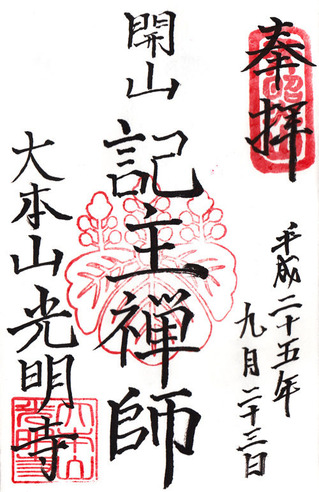 奉拝
平成二十五年
九月二十三日
開山
記主禅師
大本山光明寺